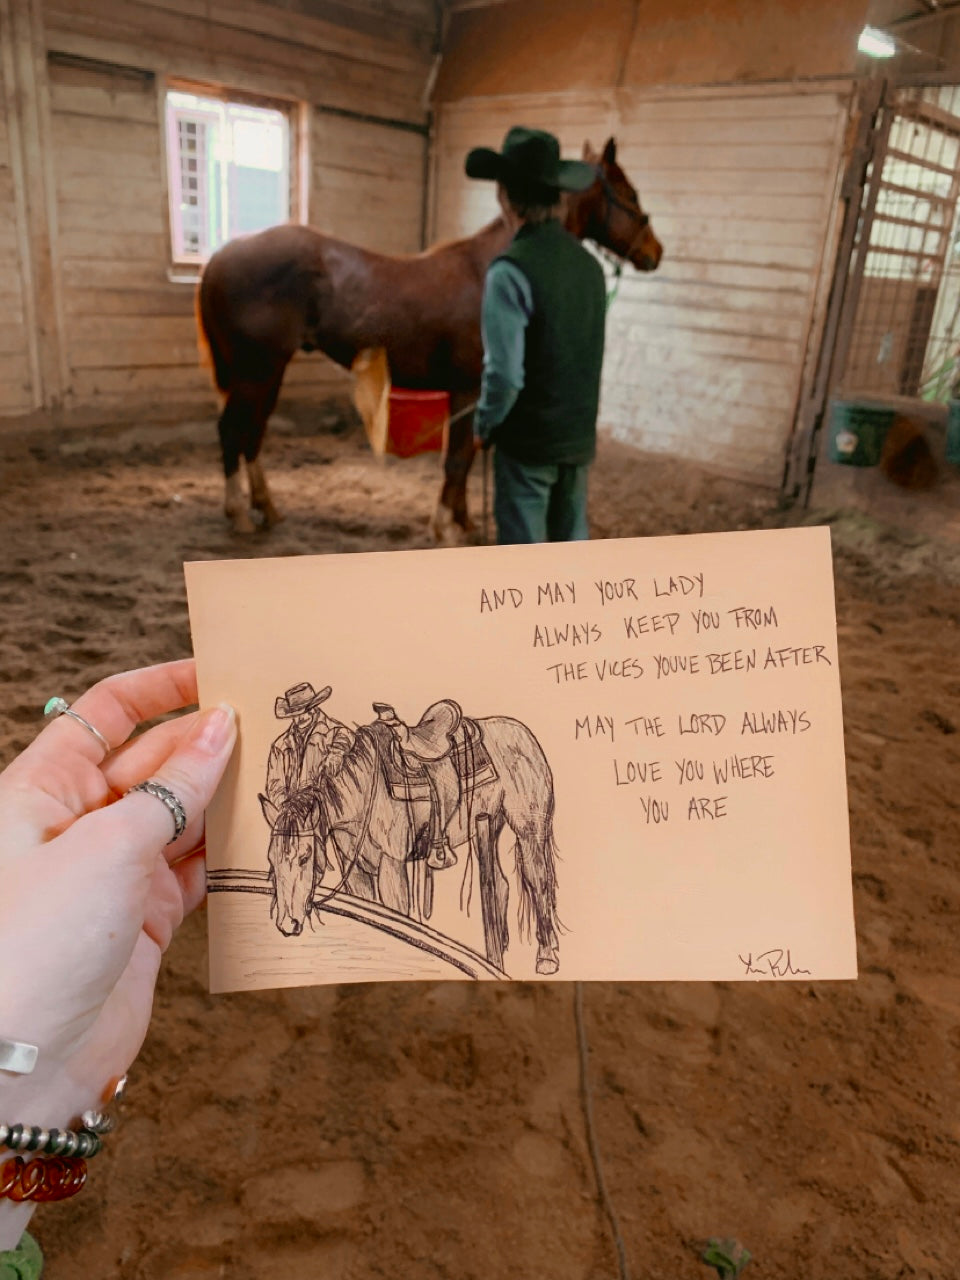 AND MAY YOUR LADY
ALWAYS KEEP YOU FROM
THE VICES YOUVE BEEN AFTER
MAY THE LORD ALWAYS
LOVE YOU WHERE
YOU ARE